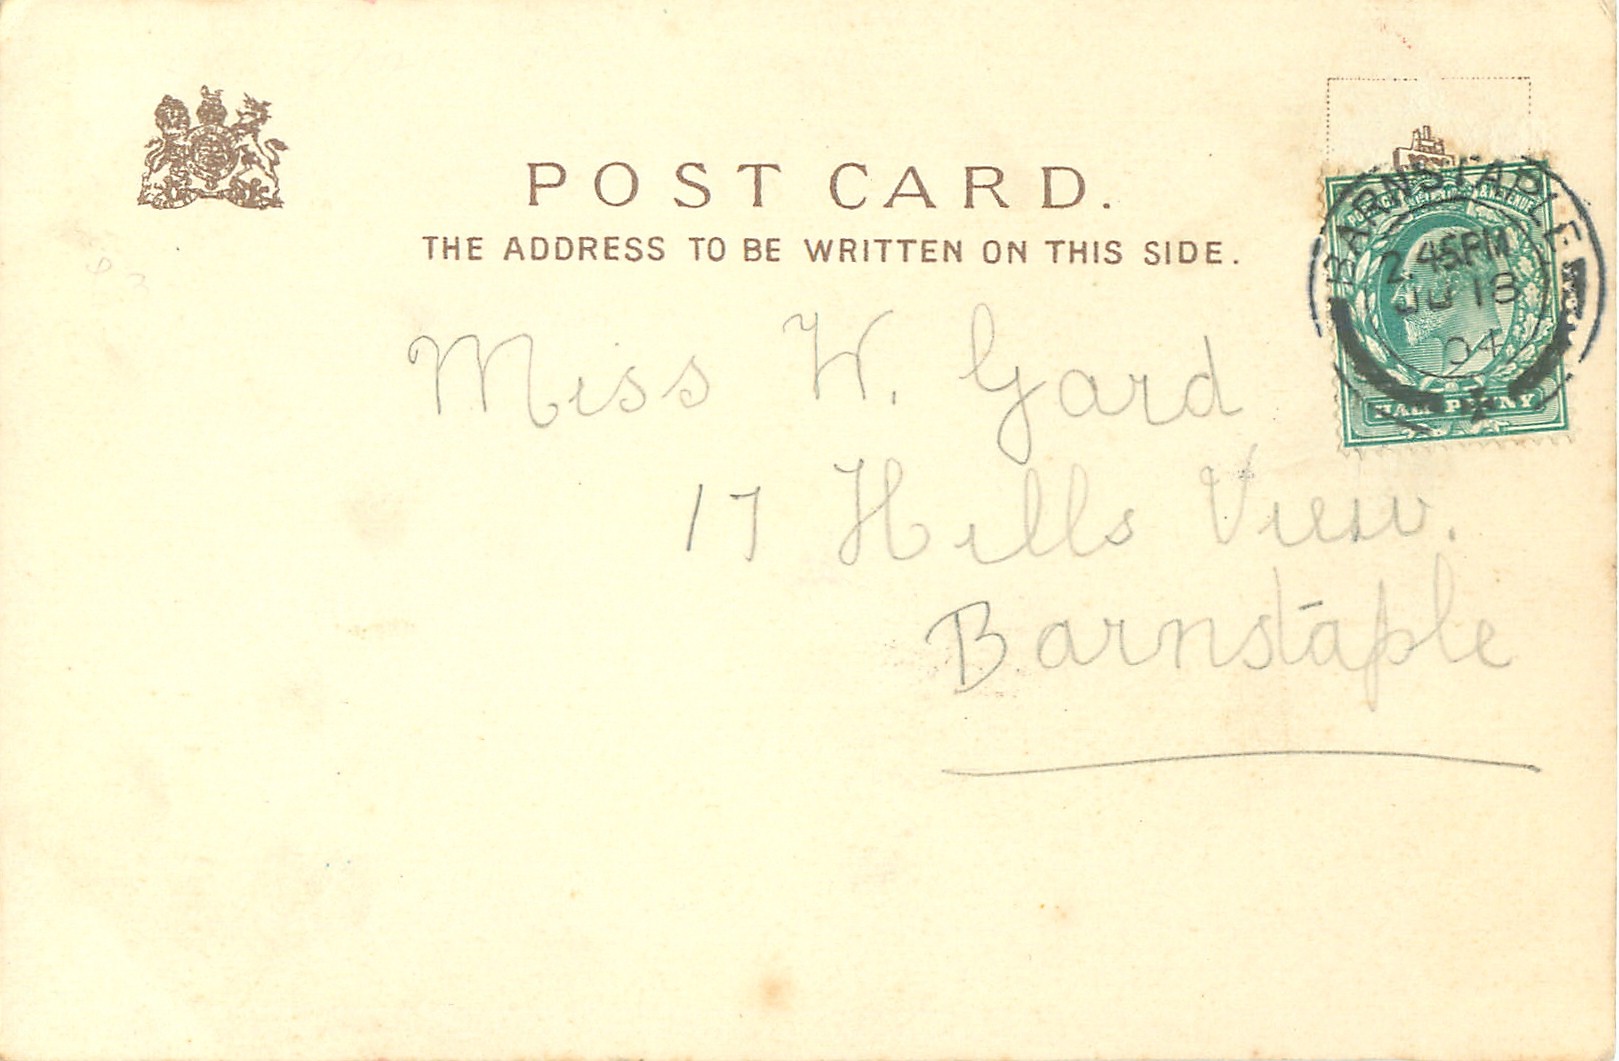 POST CARD.
THE ADDRESS TO BE WRITTEN ON THIS SIDE.
BARNSTAPLE
2.45PM
04
HALFPENNY
Miss W. Gard
17 Hills View.
Barnstaple